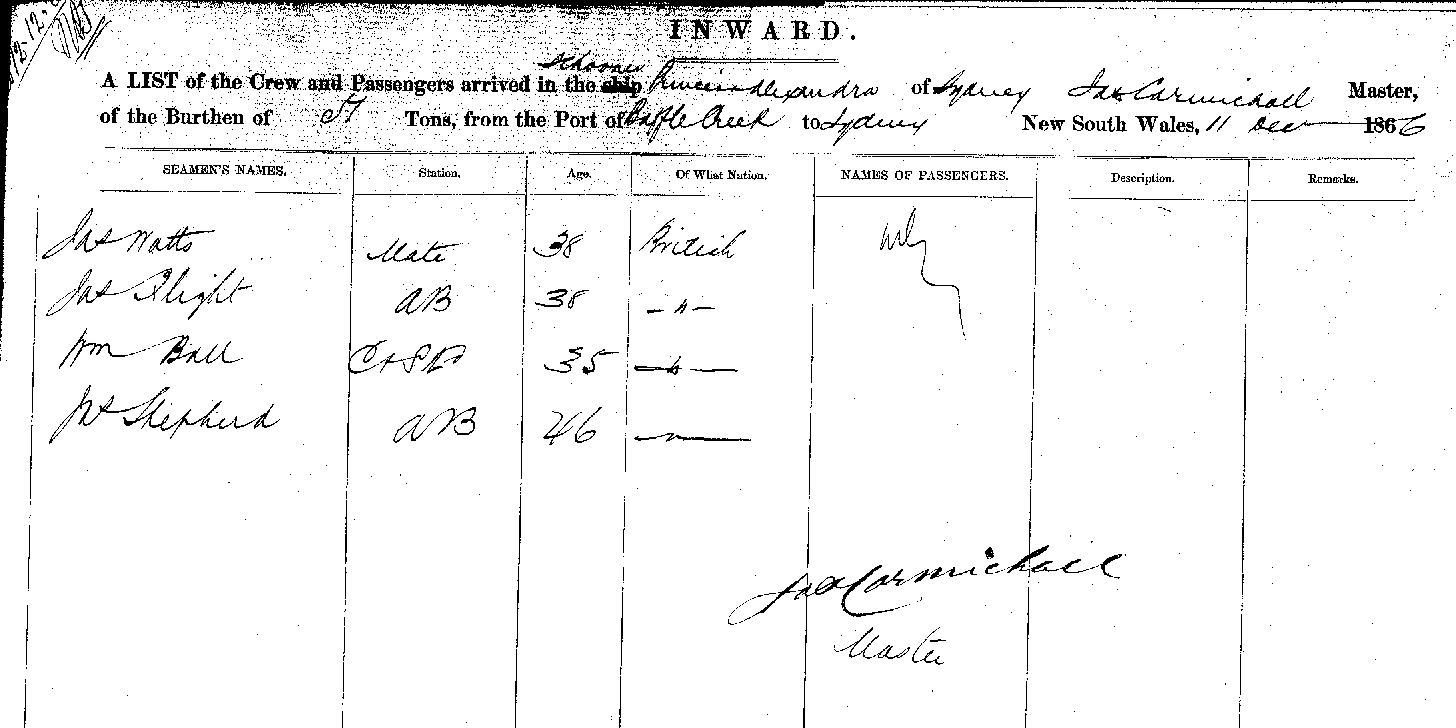 12.12.
INWARD.
Schooner
A LIST of the Crew and Passengers arrived in the ship Princess Alexandra of Sydney Jas Carmichael Master,
of the Burthen of Tons, from the Port of Baffle Creek to Sydney New South Wales, 11 Dec 1866
SEAMEN'S NAMES. Station. Age. Of What Nation. NAMES OF PASSENGERS. Description. Remarks.
Jas Watts Mate 38 British
Jas Flight AB 38 -"-
Wm Ball 35 -"-
Shepherd AB 46
Jas Carmichael
Master